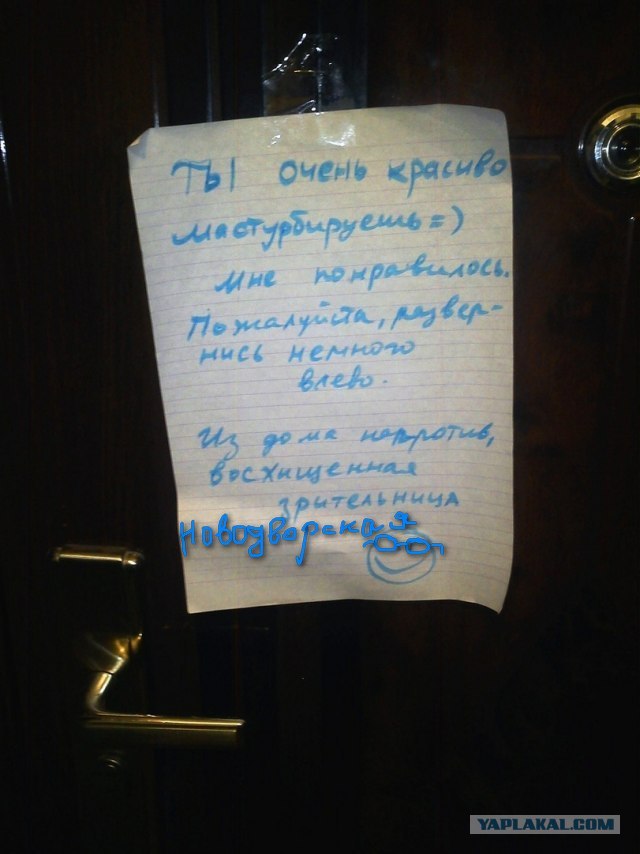 Ты очень красиво
мастурбируешь =)
Мне понравилось.
Пожалуйста, развер-
нись немного
влево.
Из дома напротив,
восхищенная
зрительница
Новодворская
YAPLAKAL.COM